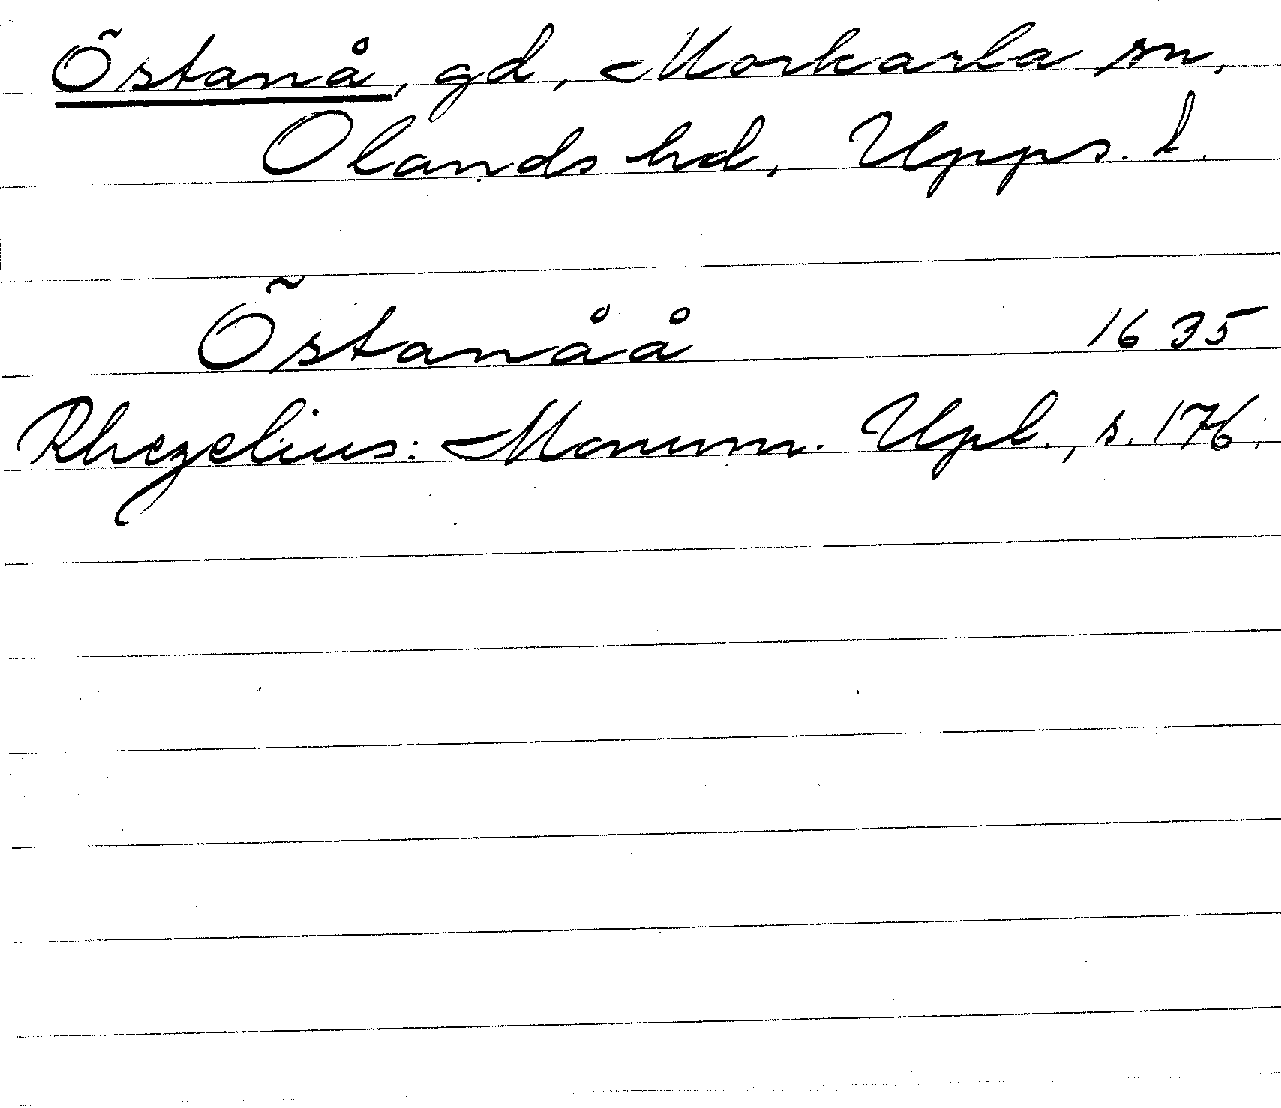 Östanå, gd, Morkarla sn,
Olands hd, Upps. l.
Östanåå 1635
Rhezelius: Monum. Upl., s. 176.